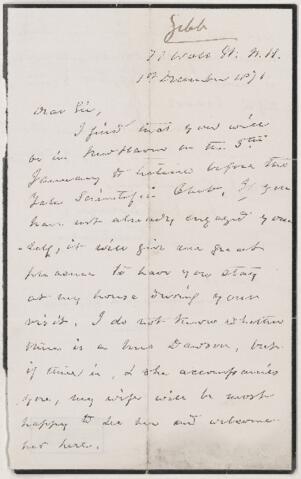 Gibb
72 Wall St. N.H.
1st December 1871
Dear Sir,
I find that you will
be in New Haven on the 5th
January to lecture before the
Yale Scientific Club. If you
have not already engaged your
-self, it will give me great
pleasure to have you stay
at my house during your
visit. I do not know whether
there is a Mrs Dawson, but
if there is, & she accompanies
you, my wife will be most
happy to see her and welcome
her here.